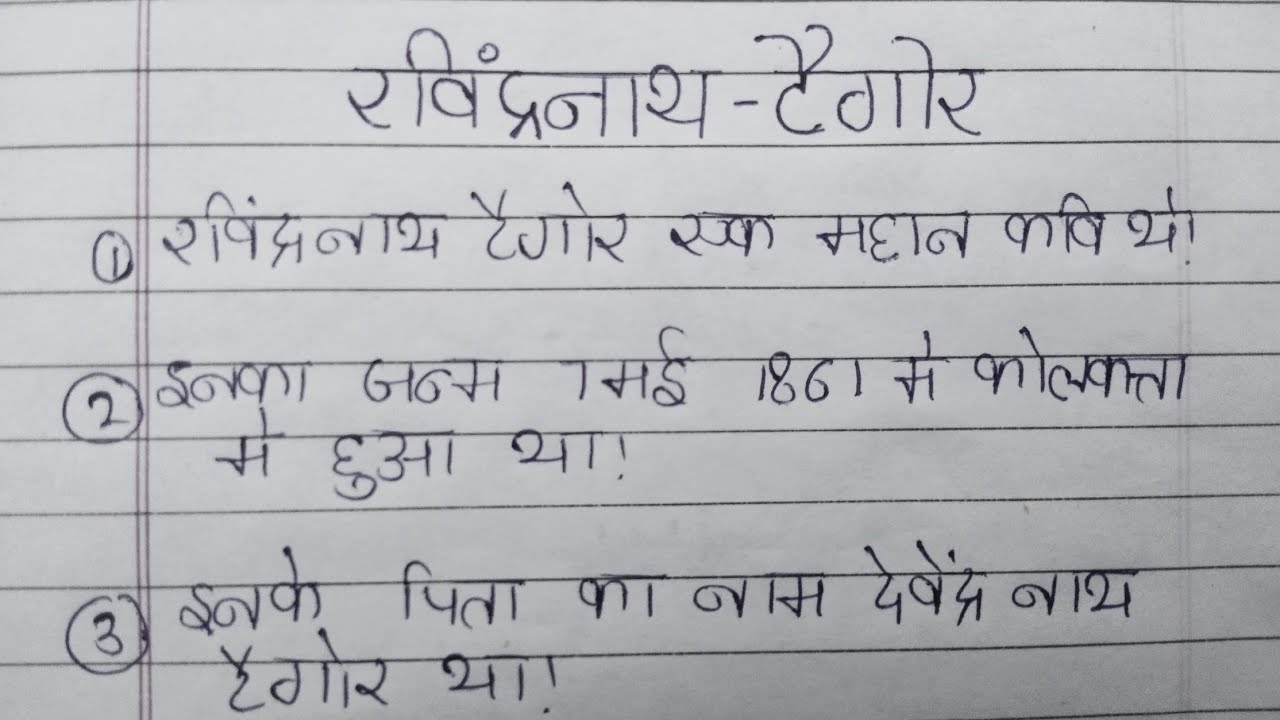 रविंद्रनाथ-टैगोर
① रविंद्रनाथ टैगोर एक महान कवि थे।
② इनका जन्म 7 मई 1861 मे कोलकत्ता
मे हुआ था।
③ इनके पिता का नाम देवेंद्र नाथ
टैगोर था।